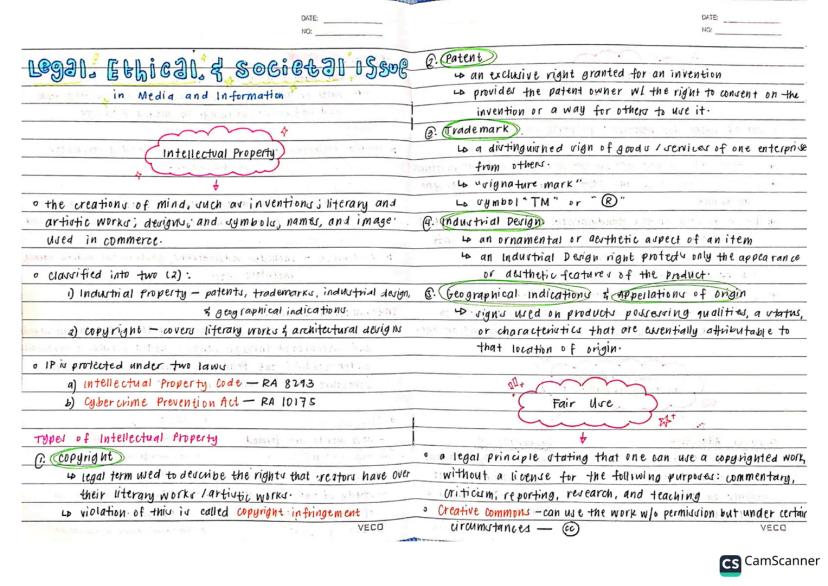 DATE:
NO:
Legal, Ethical, & Societal Issue
in Media and Information
Intellectual Property
the creations of mind, such as inventions; literary and
artistic works; designs; and symbols, names, and image
used in commerce.
classified into two (2):
1) Industrial Property — patents, trademarks, industrial design,
& geographical indications
2) copyright — covers literary works & architectural designs
IP is protected under two laws
a) Intellectual Property Code — RA 8293
b) Cybercrime Prevention Act — RA 10175
Types of Intellectual Property
1. Copyright
↳ legal term used to describe the rights that creators have over
their literary works / artistic works.
↳ violation of this is called copyright infringement
VECO
DATE:
NO:
2. Patent
↳ an exclusive right granted for an invention
↳ provides the patent owner w/ the right to consent on the
invention or a way for others to use it.
3. Trademark
↳ a distinguished sign of goods / services of one enterprise
from others.
↳ "signature mark"
↳ symbol "TM" or "®"
4. Industrial Design
↳ an ornamental or aesthetic aspect of an item
↳ an Industrial Design right protects only the appearance
or aesthetic features of the product.
5. Geographical Indications & Appellations of Origin
↳ signs used on products possessing qualities, a status,
or characteristics that are essentially attributable to
that location of origin.
Fair Use
a legal principle stating that one can use a copyrighted work,
without a license for the following purposes: commentary,
criticism, reporting, research, and teaching
Creative commons — can use the work w/o permission but under certain
circumstances — cc
VECO
CS CamScanner